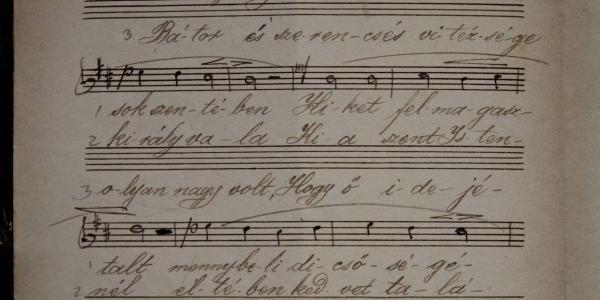 3 Bá-tor és sze-ren-csés vi-téz-sé-ge
1 sok szen-té-ben Ki-ket fel-ma-gasz-
2 ki-rály va-la Ki-a szent Is-ten-
3 o-lyan nagy volt, Hogy ő i-de-jé-
1 talt mennybe-li di-cső-sé-gé-
2 nél el-té-ben ked-vet ta-lá-